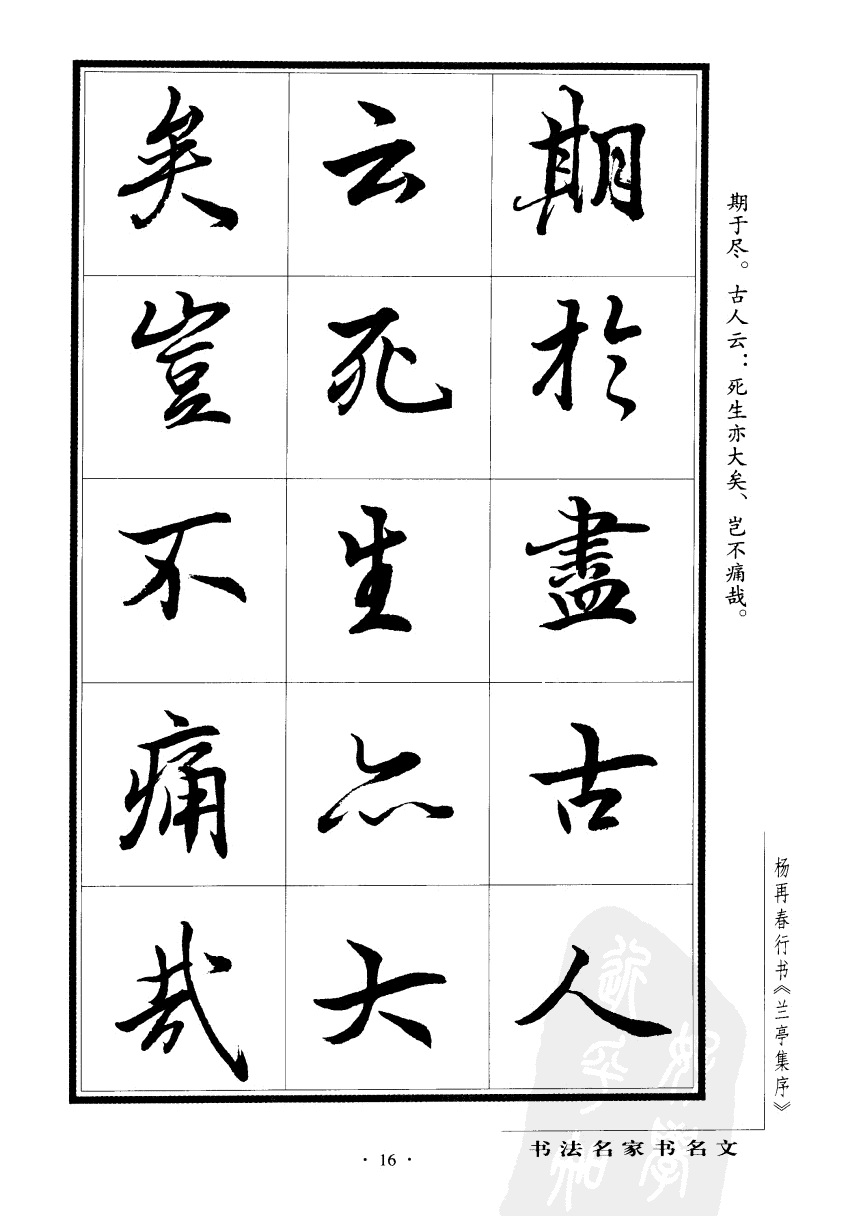 期於盡古人
云死生亦大
矣豈不痛哉
期于尽。古人云：死生亦大矣、岂不痛哉。
杨再春行书《兰亭集序》
书法名家书名文
· 16 ·